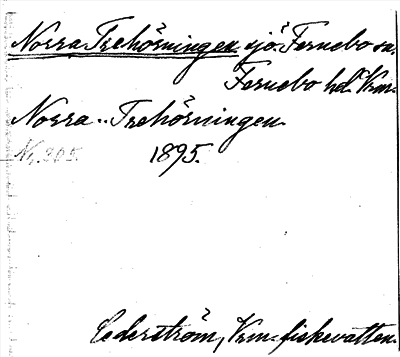 Norra Trehörningen sjö. Fernebo sn.
Fernebo hd. Vrm.
Norra Trehörningen
Nr. 205. 1895.
Cederström, Vrm. fiskevatten.